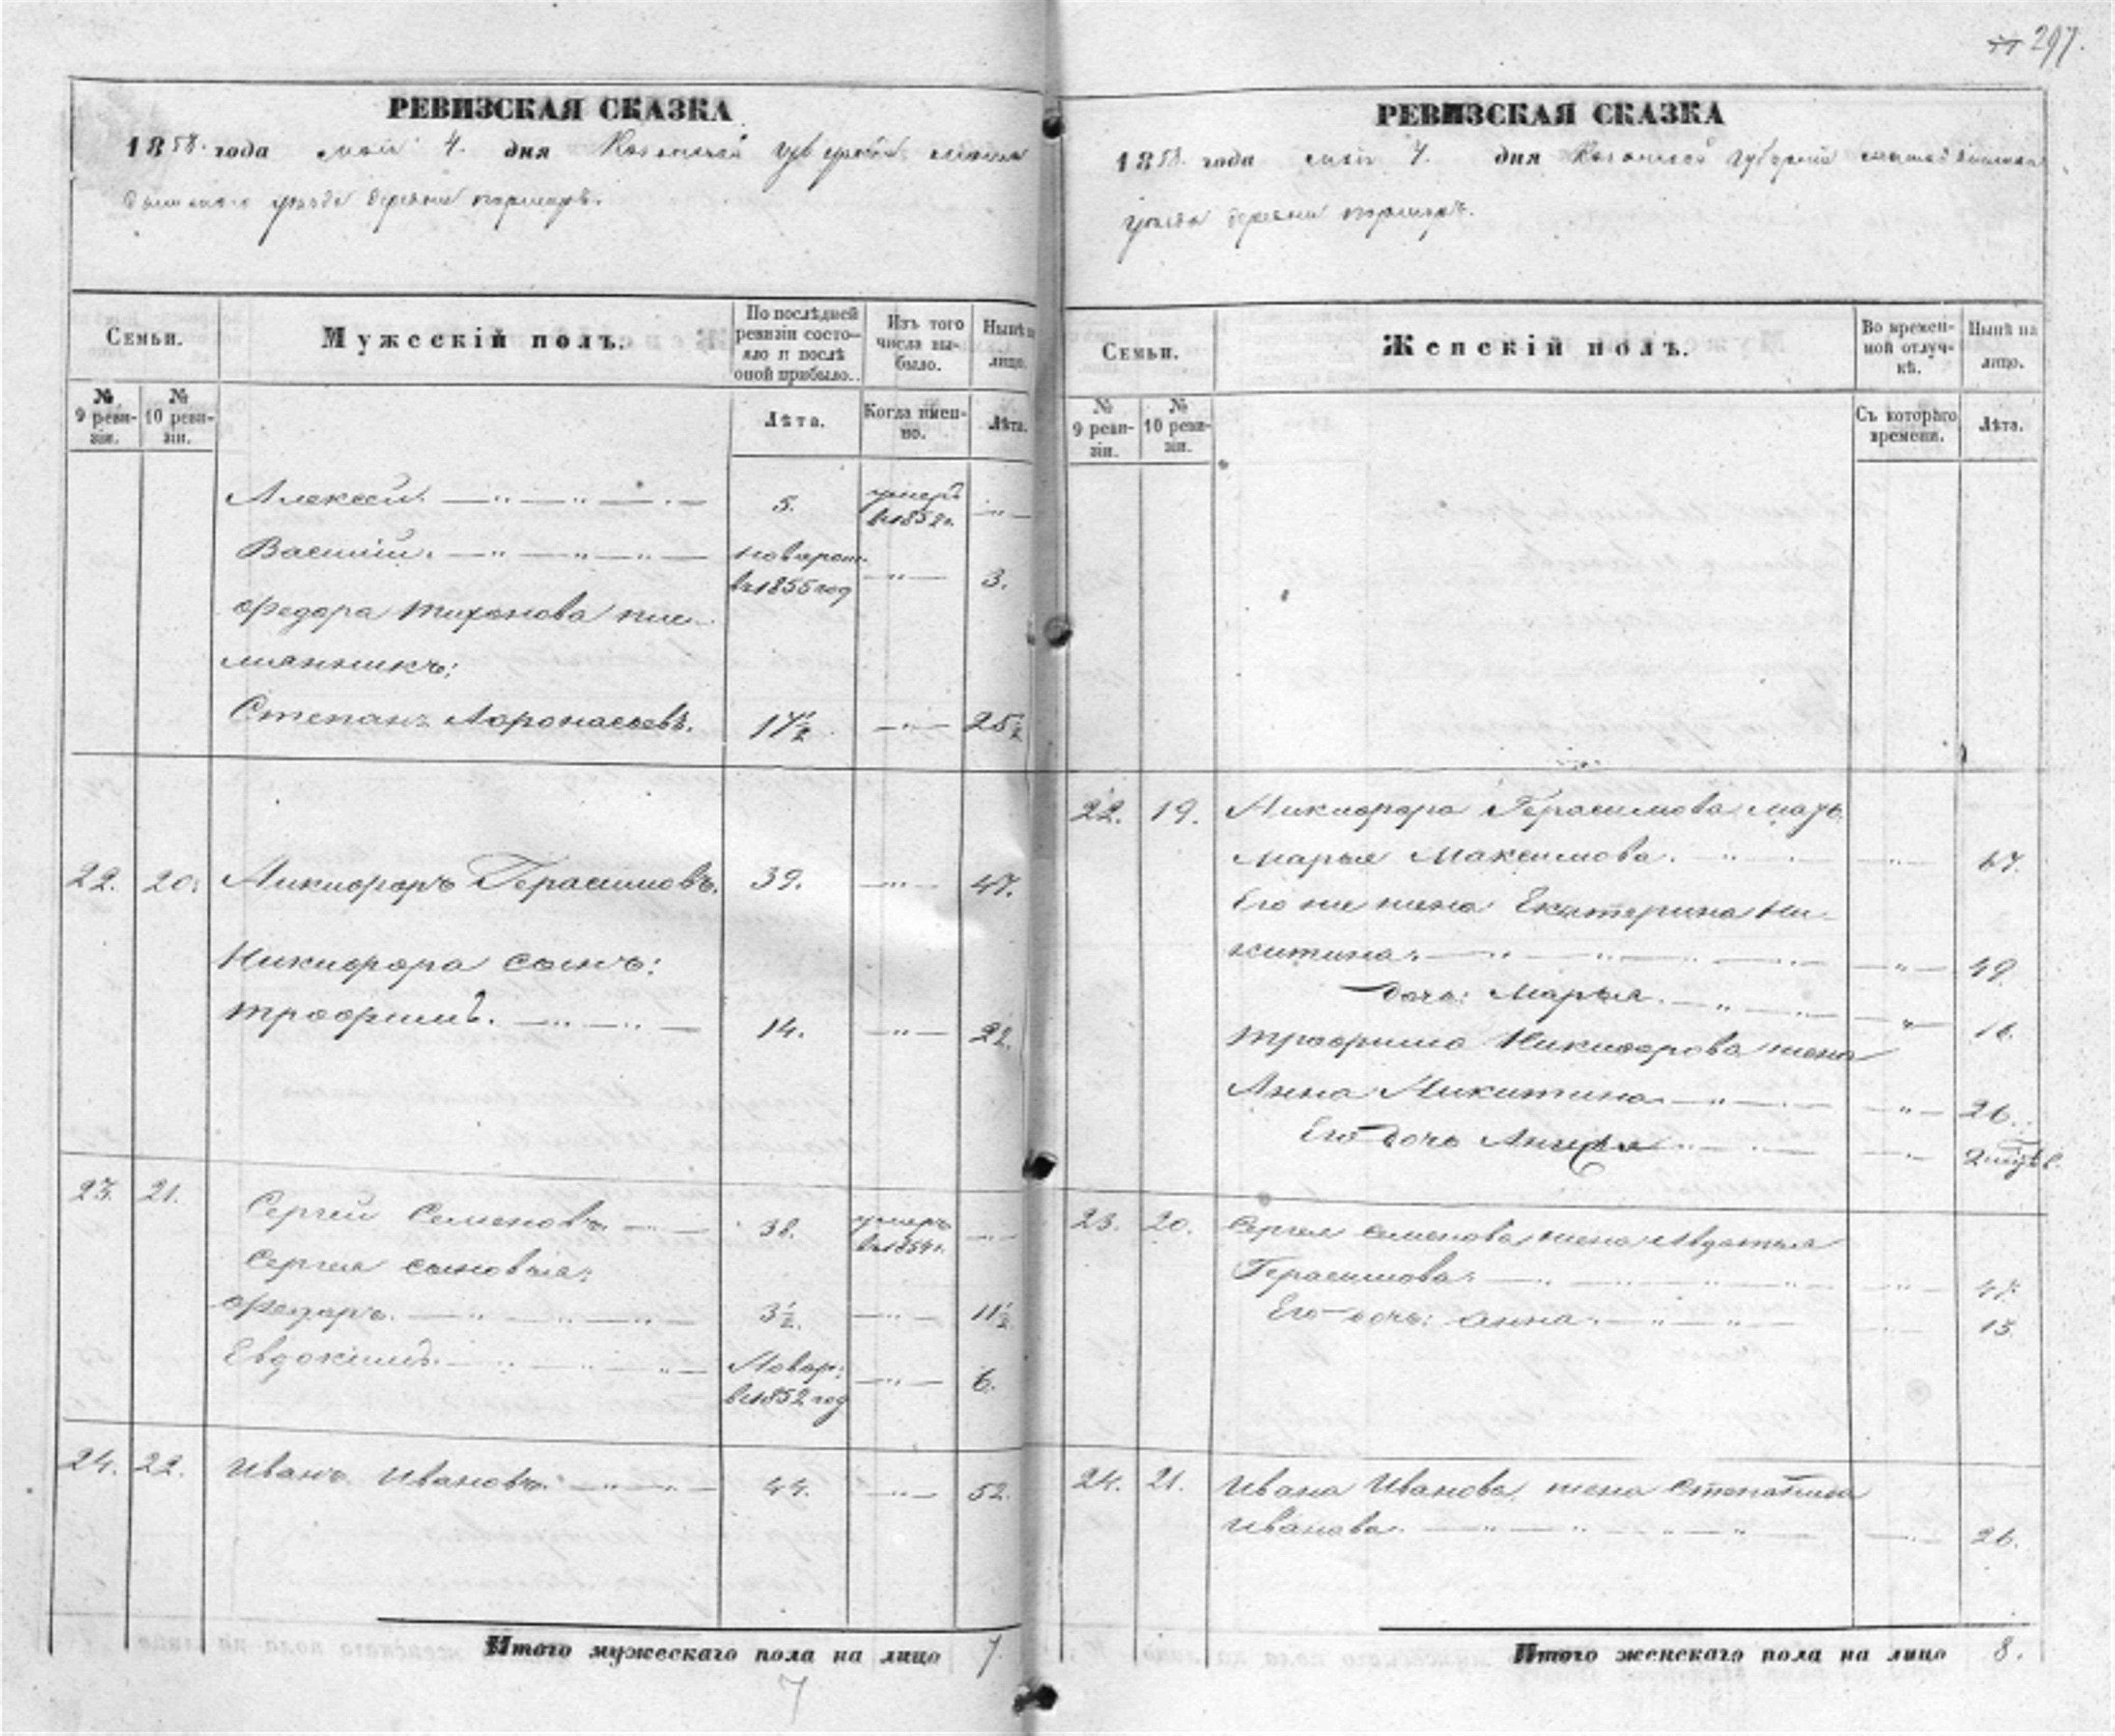 297.
РЕВИЗСКАЯ СКАЗКА
1858. года мая 4. дня Казанской губернии
уѣзда деревни
Семьи.
Мужескій полъ.
По послѣдней ревизіи состояло и послѣ оной прибыло.
Изъ того числа выбыло.
Нынѣ на лицо.
№ 9 ревизіи.
№ 10 ревизіи.
Лѣта.
Когда именно.
Лѣта.
Алексей. — " — " — " — 5. умеръ в 1852 г. — " —
Василій. — " — " — " — новорож. в 1855 год — " — 3.
Федора Тихонова пле-
мянникъ:
Степанъ Афонасьевъ. 17½ — " — 25½
22. 20. Никифоръ Герасимовъ. 39. — " — 47.
Никифора сынъ:
Трофимъ. — " — " — 14. — " — 22.
23. 21. Сергей Семеновъ — " — 38. умеръ в 1854 г. — " —
Сергея сыновья:
Федоръ. — " — " — " — 3½. — " — 11½
Евдокимъ. — " — " — " — Новор: в 1852 год — " — 6.
24. 22. Иванъ Ивановъ. — " — " — 44. — " — 52.
Итого мужескаго пола на лицо 7.
7
РЕВИЗСКАЯ СКАЗКА
1858. года мая 4. дня Казанской губернии
уѣзда деревни
Семьи.
Женскій полъ.
Во временной отлучкѣ.
Нынѣ на лицо.
№ 9 ревизіи.
№ 10 ревизіи.
Съ котораго времени.
Лѣта.
22. 19. Никифора Герасимова мать
Марья Максимова. — " — 67.
Его же жена Екатерина Ни-
китина. — " — " — " — " — 49.
дочь: Марья. — " — " — 16.
Трофима Никифорова жена
Анна Никитина — " — " — 26.
Его дочь — " —
23. 20. Сергея Семенова жена Авдотья
Герасимова. — " — " — " — " — 47.
Его дочь: Анна. — " — " — 13.
24. 21. Ивана Иванова жена Степанида
Иванова. — " — " — " — " — 26.
Итого женскаго пола на лицо 8.